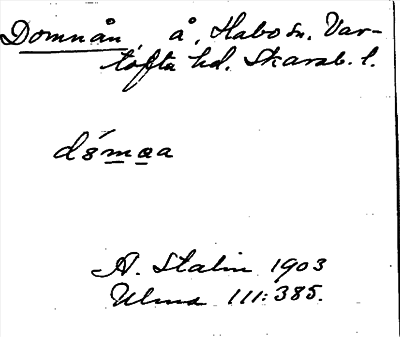 Domnån, å, Habo sn. Var-
tofta hd. Skarab. l.
A. Stalin 1903
Ulma 111:385.